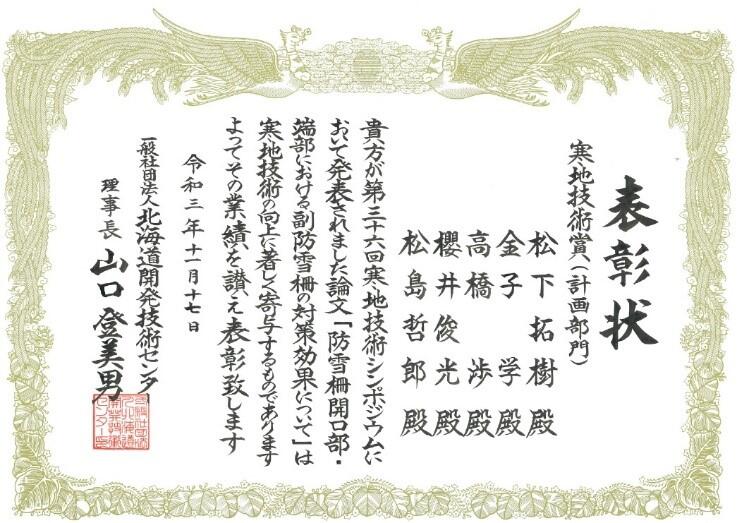 表彰状
寒地技術賞(計画部門)
松下拓樹殿
金子学殿
高橋渉殿
櫻井俊光殿
松島哲郎殿
貴方が第三十六回寒地技術シンポジウムに
おいて発表されました論文「防雪柵開口部・
端部における副防雪柵の対策効果について」は
寒地技術の向上に著しく寄与するものであります
よってその業績を讃え表彰致します
令和三年十一月十七日
一般社団法人北海道開発技術センター
理事長 山口登美男